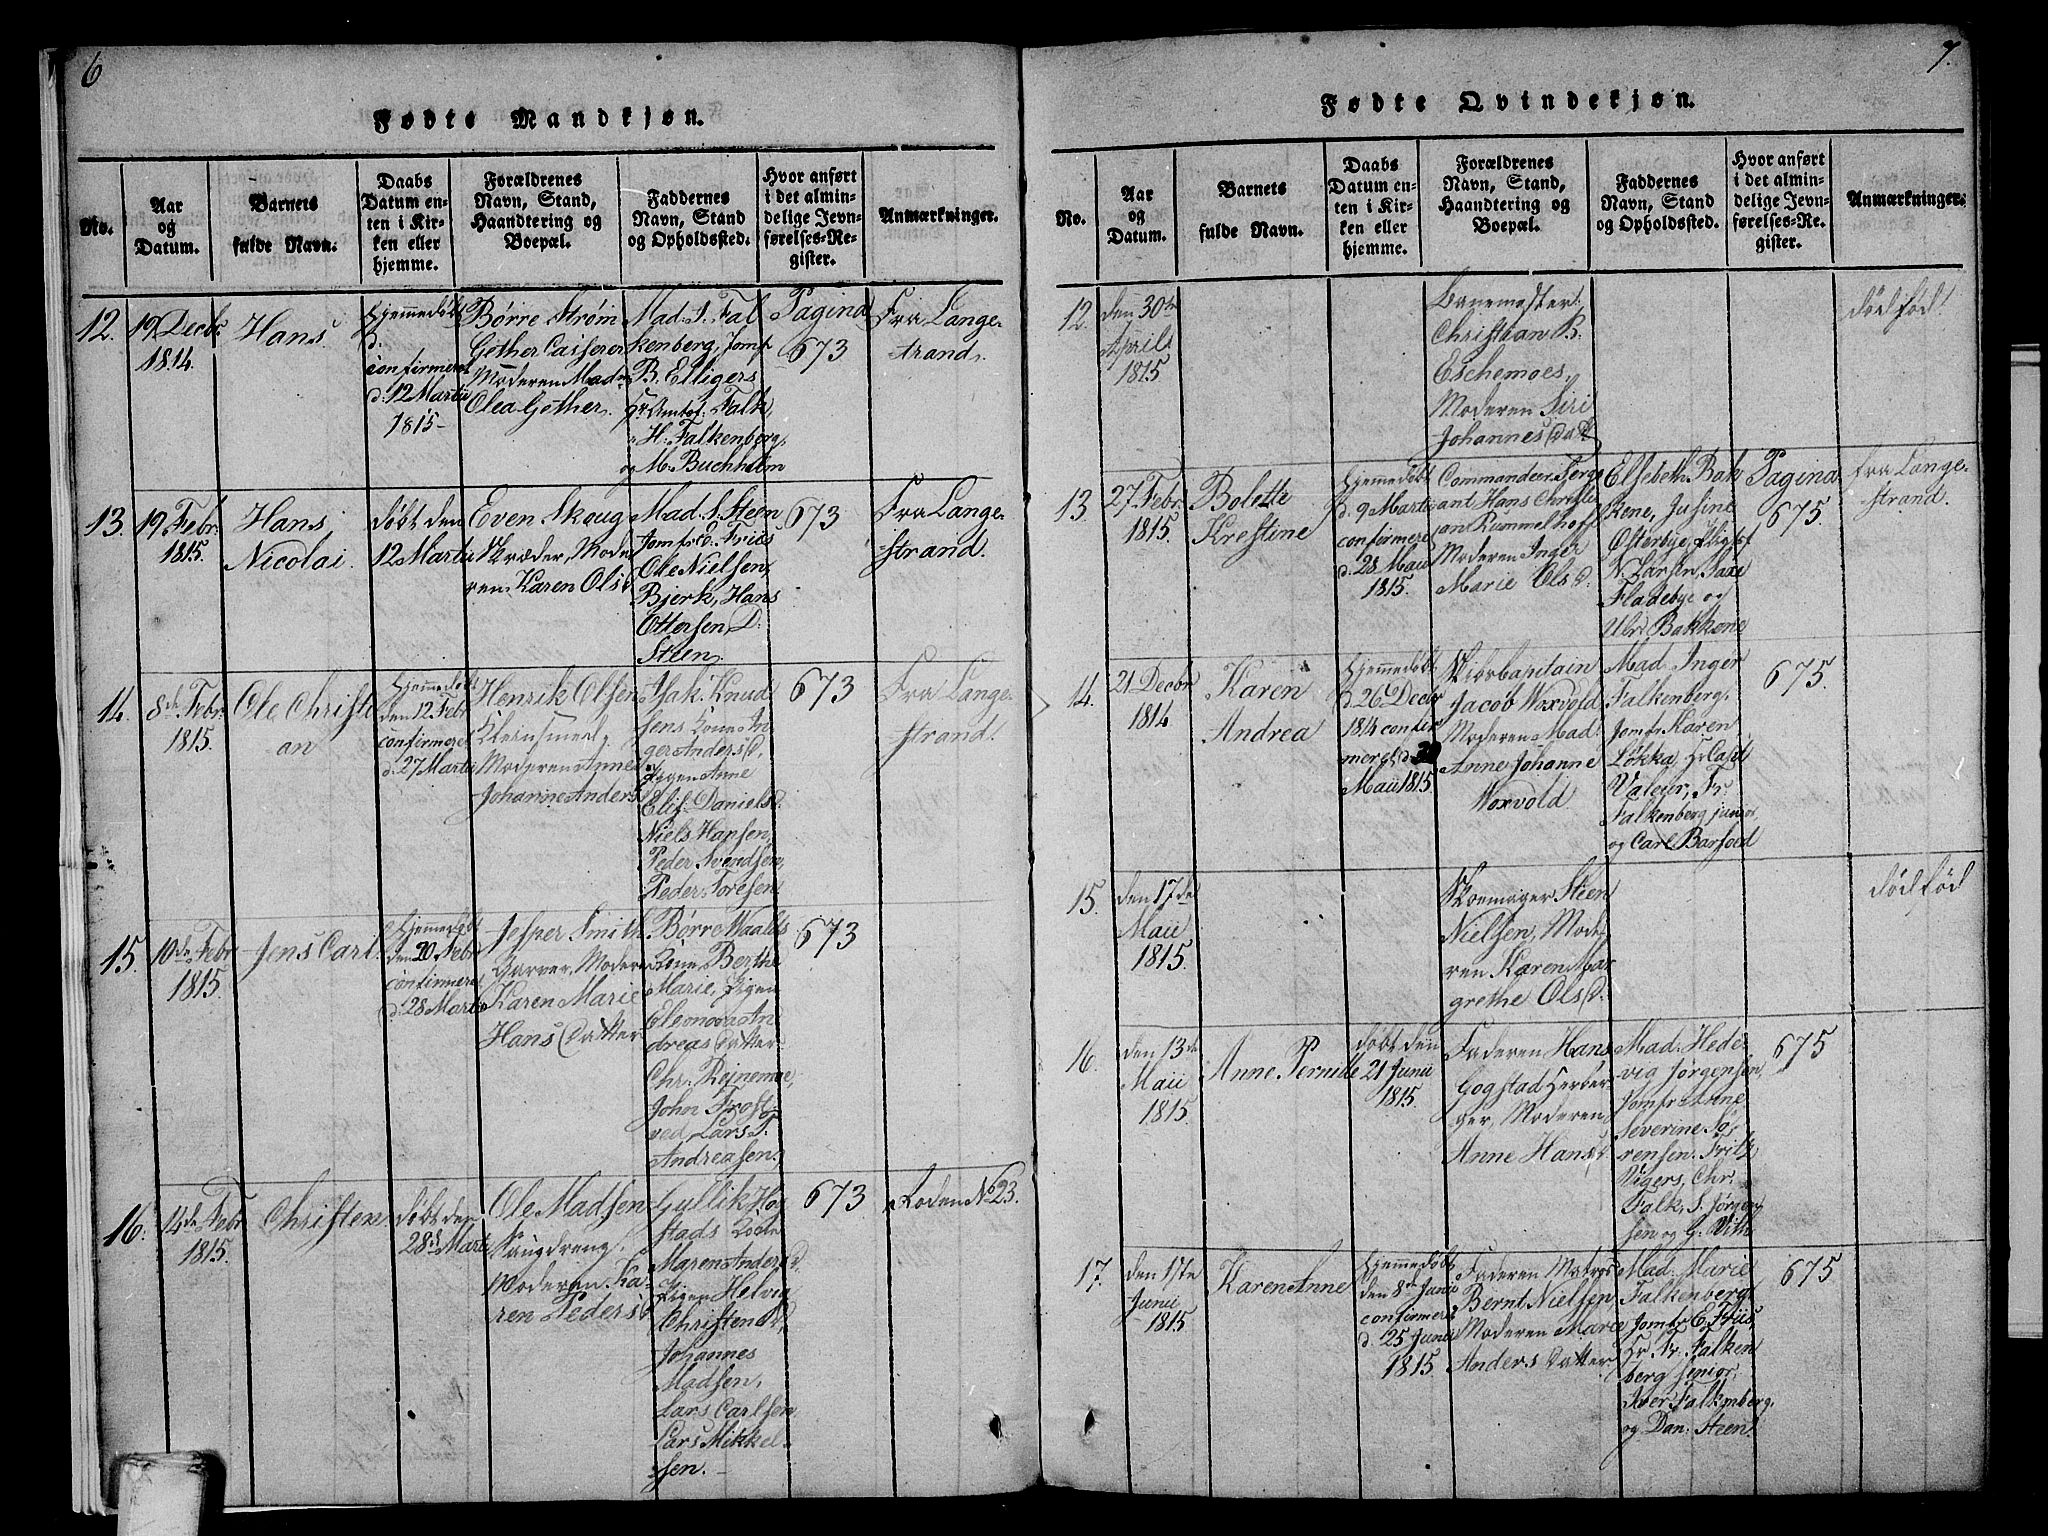 6
Fødte Mandkjøn.
No.
Aar
og
Datum.
Barnets
fulde Navn.
Daabs
Datum en-
ten i Kir-
ken eller
hjemme.
Forældrenes
Navn, Stand,
Haandtering og
Boepæl.
Faddernes
Navn, Stand
og Opholdssted.
Hvor anført
i det almin-
delige Jevn-
førelses-Re-
gister.
Anmærkninger.
12.
19 Decbr
1814.
Hans
Hjemmedøbt
d.
confirmeret
d: 12 Martii
1815-
Børre Strøm
Gether
Moderen Mad
Olea Gether.
Mad. S. Fal
kenberg, Jomf
B. Elligers
Falk,
H: Falkenberg,
og M. Buchholm
Pagina
673
Fra Lange-
strand.
13.
19 Febr
1815.
Hans
Nicolai.
døbt den
12 Martii
Even Skoug
Skræder, Mode
ren Karen Olsd
Mad. S. Steen
Jomfr D. Friis
Ole Nielsen
Bjerk, Hans
Ottersen, D:
Steen.
673
Fra Lange-
strand.
14.
8de Febr
1815.
Ole Christi
an
Hjemmedøbt
den 12 Febr
confirmeret
d. 27 Martii
Henrik Olsen
Kleinsmed,
Moderen Anne
Johanne Andersd
Isak Knud
sens Kone In
ger Andersd,
Pigen Anne
Elis. Danielsd.
Niels Hansen,
Peder Svendsen,
Peder Toresen
673
Fra Lange-
strand.
15.
10de Febr
1815.
Jens Carl
Hjemmedøbt
den 20 Febr
confirmeret
d. 28 Martii
Jesper Smith
Garver, Moder
Karen Marie
Hans Datter
Børre Waalds
Kone, Berthe
Marie, Pigen
Eleonora An
dreas Datter
Chr. Rejnemoe,
John Frost
ved, Lars T.
Andreasen,
673
16.
14de Febr
1815.
Christen
døbt den
28de Martii
Ole Madsen
Saugdreng,
Moderen Ka-
ren Pedersd
Gullik Hog
stads Kone
Maren Andersd.
Pigen Helvig
Christen D,
Johannes
Madsen,
Lars Carlsen
Lars Mikkel-
sen.
673
Roden No 23.
7.
Fødte Qvindekjøn.
No.
Aar
og
Datum.
Barnets
fulde Navn.
Daabs
Datum en-
ten i Kir-
ken eller
hjemme.
Forældrenes
Navn, Stand,
Haandtering og
Boepæl.
Faddernes
Navn, Stand
og Opholdssted.
Hvor anført
i det almin-
delige Jevn-
førelses-Re-
gister.
Anmærkninger.
12.
den 30te
Aprils
1815
Christian R.
Eschemoes,
Moderen Siri
Johannes Datt
dødfød!
13.
27 Febr
1815.
Bolette
Krestine
Hjemmedøbt
d. 9 Martii
confirmeret
d. 28 Maii
1815.
Commandeer Serge
ant Hans Christi
jan Rummelhoff
Moderen Inger
Marie Olsd.
Elsebeth Bak
kene, Jusine
Østerbye,
N. Larsen, Saxe
Fladebye og
Ulr. Bakkene
Pagina
675.
fra Lange-
strand.
14.
21 Decbr
1814
Karen
Andrea
Hjemmedøbt
d. 26 Decbr
1814 confir
meret d. 28
Maii 1815.
Skibscapitain
Jacob Woxvold
Moderen Mad.
Anne Johanne
Woxvold
Mad. Inger
Falkenberg,
Jomfr Karen
Løkka, Hr Capt
Valeur, Fr.
Falkenberg junior,
og Carl Barfoed
675.
15.
den 17de
Maii
1815.
Skoemager Steen
Nielsen, Mode
ren Karen Mar
grethe Olsd.
dødfød
16.
den 13de
Maii
1815.
Anne Pernille
døbt den
21 Junii
1815.
Faderen Hans
Gogstad Herber
ger, Moderen
Anne Hansd.
Mad. Hede-
vig Jørgensen,
Jomfr Anne
Severine Sø
rensen. Fritz
Vigers, Chr.
Falk, S. Jørgen
sen og G. Vith
675
17.
den 1ste
Junii
1815
Karen Anne
Hjemmedøbt
den 8de Junii
confirmeret
d. 25 Junii
1815.
Faderen Matros
Bernt Nielsen,
Moderen Marie
Anders Datter
Mad. Marie
Falkenberg
Jomfr E. Friis,
Hr Fr. Falken
berg senior,
Iver Falkenberg.
og Dan: Steen.
675